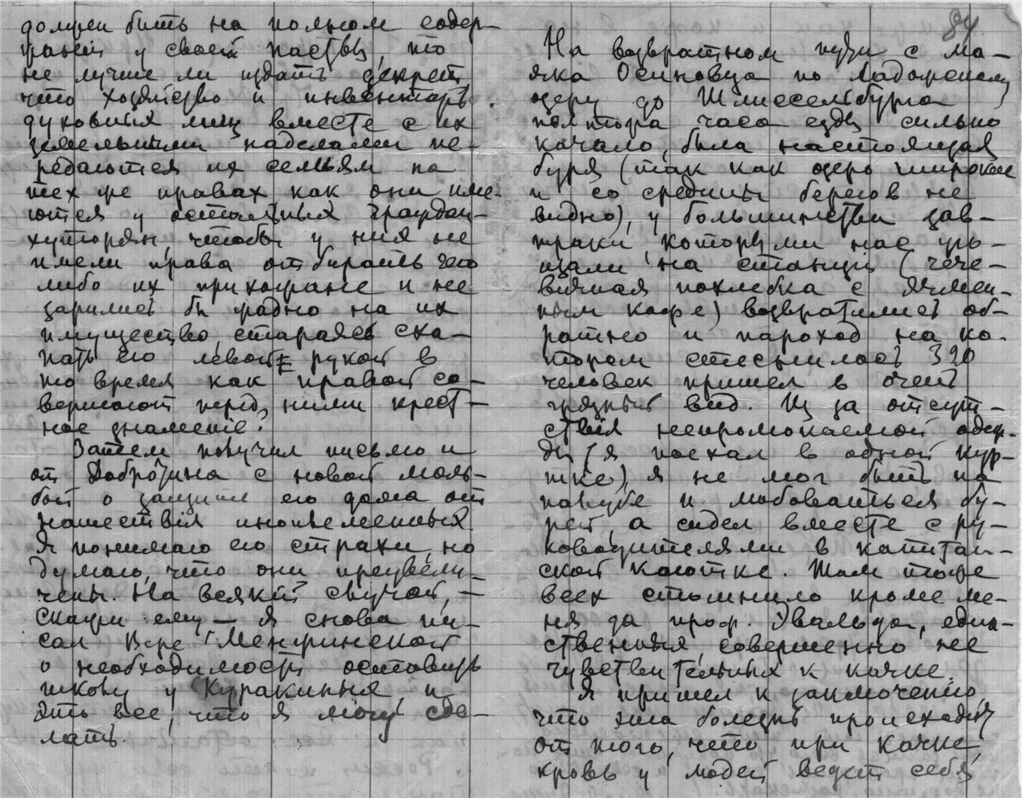 должен быть на полном содер-
жании у своей паствы, то
не лучше ли издать декрет
что хозяйство и инвентарь
духовных лиц вместе с их
земельными наделами пе-
редаются их семьям на
тех же правах как они име-
ются у остальных граждан-
хуторян чтобы у них не
имели права отбирать чего
либо их прихожане и не
зарились бы жадно на их
имущество, стараясь сха-
пать его левой рукой в
то время как правой со-
вершают перед ними крест-
ное знамение.
Затем получил письмо и
от Доброхина с новой моль-
бой о защите его дома от
нашествия иноплеменных
Я понимаю его страхи, но
думаю, что они преувели-
чены. На всякий случай, —
скажи ему — я снова пи-
сал Вере Менжинской
о необходимости оставить
школу у Куракиных и
это все, что я могу сде-
лать.
84.
На возвратном пути с ма-
яка Осиновца по Ладожскому
озеру до Шлиссельбурга
полтора часа езды сильно
качало, была настоящая
буря (так как озеро широкое
и со средины берегов не
видно), у большинства зав-
траки, которыми нас уго-
щали на станции (чече-
вичная похлебка с ячмен-
ным кофе) возвратились об-
ратно и пароход на ко-
тором стеснилось 320
человек пришел в очень
грязный вид. Из за отсут-
ствия непромокаемой одеж-
ды (я поехал в одной кур-
тке) я не мог быть на
палубе и любоваться бу-
рей, а сидел вместе с ру-
ководителями в капитан-
ской каютке. Там тоже
всех стошнило кроме ме-
ня да проф. Эвальда, един-
ственных, совершенно не
чувствительных к качке.
Я пришел к заключению,
что эта болезнь происходит
от того, что при качке
кровь у людей ведет себя